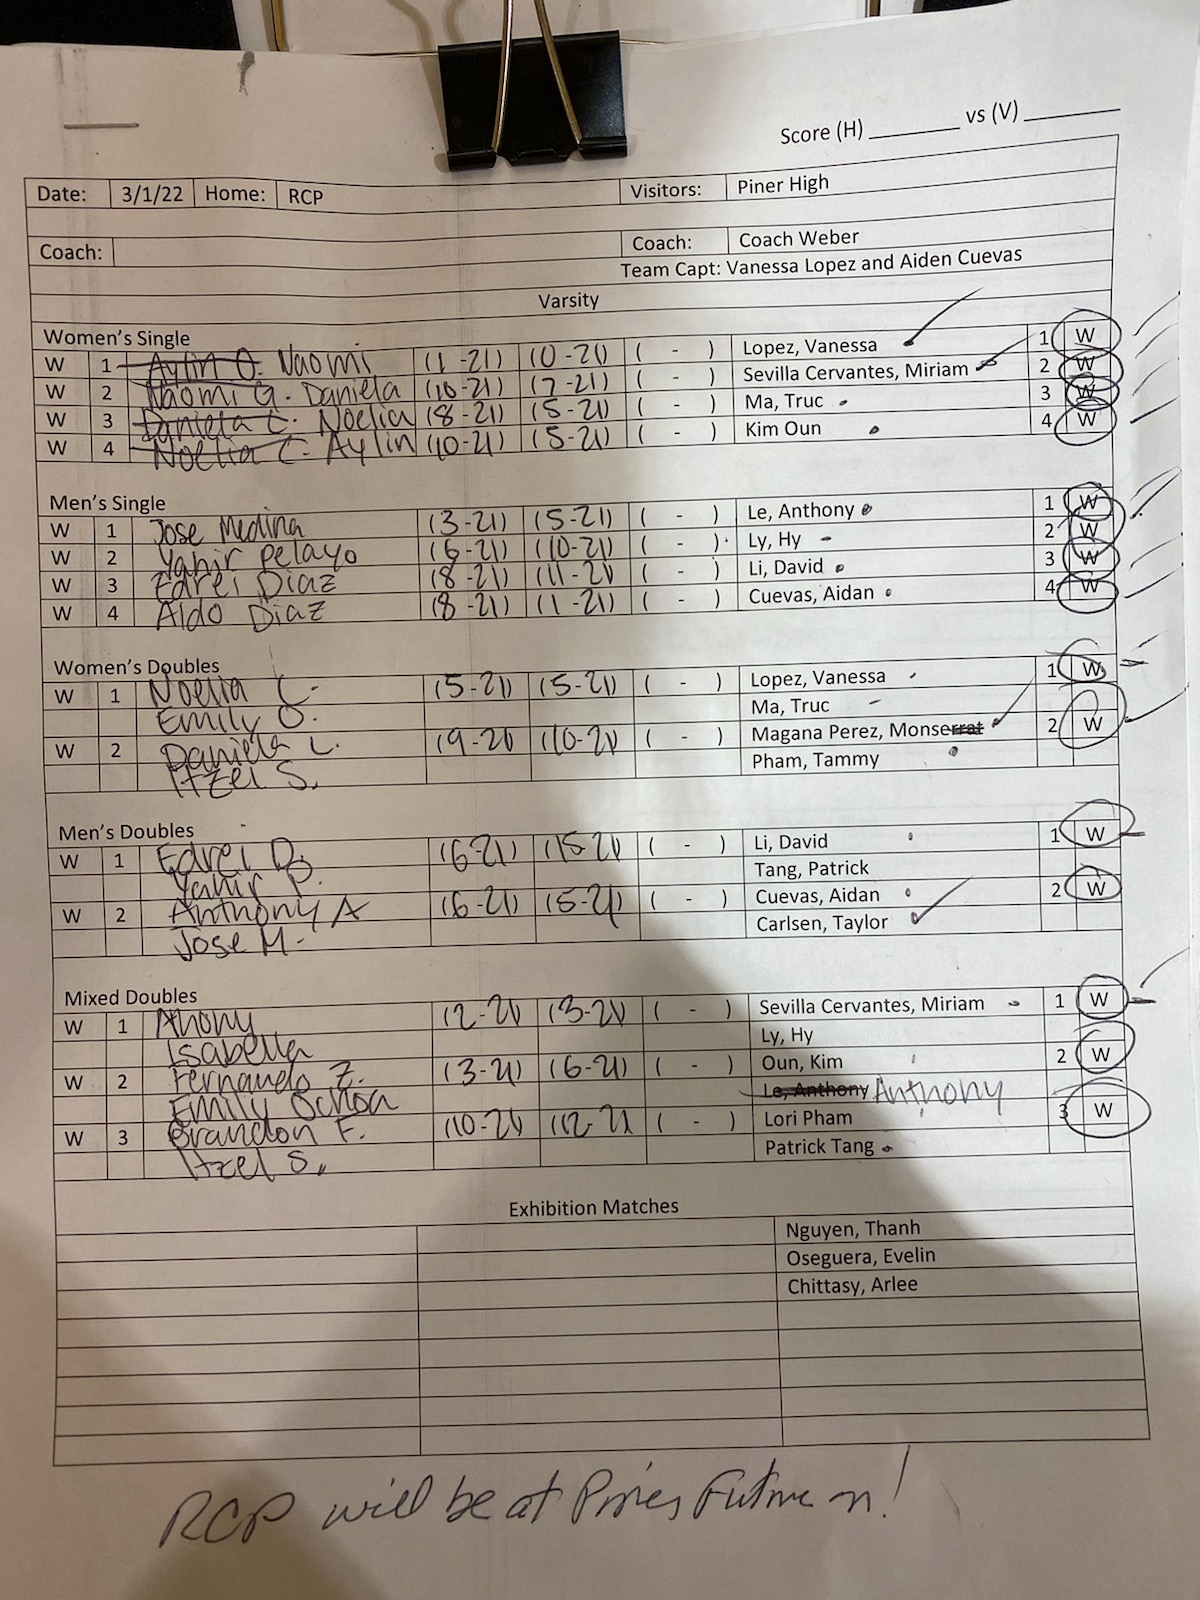 Score (H) ________ vs (V) ________
Date: 3/1/22 Home: RCP Visitors: Piner High
Coach: Coach: Coach Weber
Team Capt: Vanessa Lopez and Aiden Cuevas
Varsity
Women's Single
W 1 Aylin O. Naomi (11-21) (10-21) ( - ) Lopez, Vanessa 1 W
W 2 Naomi G. Daniela (10-21) (7-21) ( - ) Sevilla Cervantes, Miriam 2 W
W 3 Daniela C. Noelia (8-21) (5-21) ( - ) Ma, Truc 3 W
W 4 Noelia C. Aylin (10-21) (5-21) ( - ) Kim Oun 4 W
Men's Single
W 1 Jose Medina (3-21) (5-21) ( - ) Le, Anthony 1 W
W 2 Yahir Pelayo (6-21) (10-21) ( - ) Ly, Hy 2 W
W 3 Edrei Diaz (8-21) (11-21) ( - ) Li, David 3 W
W 4 Aldo Diaz (8-21) (11-21) ( - ) Cuevas, Aidan 4 W
Women's Doubles
W 1 Noelia C. (5-21) (5-21) ( - ) Lopez, Vanessa 1 W
Emily O. Ma, Truc
W 2 Daniela L. (9-21) (10-21) ( - ) Magana Perez, Monserrat 2 W
Itzel S. Pham, Tammy
Men's Doubles
W 1 Edrei D. (6-21) (15-21) ( - ) Li, David 1 W
Yahir P. Tang, Patrick
W 2 Anthony A (6-21) (5-21) ( - ) Cuevas, Aidan 2 W
Jose M. Carlsen, Taylor
Mixed Doubles
W 1 (12-21) (13-21) ( - ) Sevilla Cervantes, Miriam 1 W
Isabella Ly, Hy
W 2 Fernando Z. (3-21) (6-21) ( - ) Oun, Kim 2 W
Emily Ochoa Le, Anthony Anthony
W 3 Brandon F. (10-21) (12-21) ( - ) Lori Pham 3 W
Itzel S. Patrick Tang
Exhibition Matches
Nguyen, Thanh
Oseguera, Evelin
Chittasy, Arlee
RCP will be at